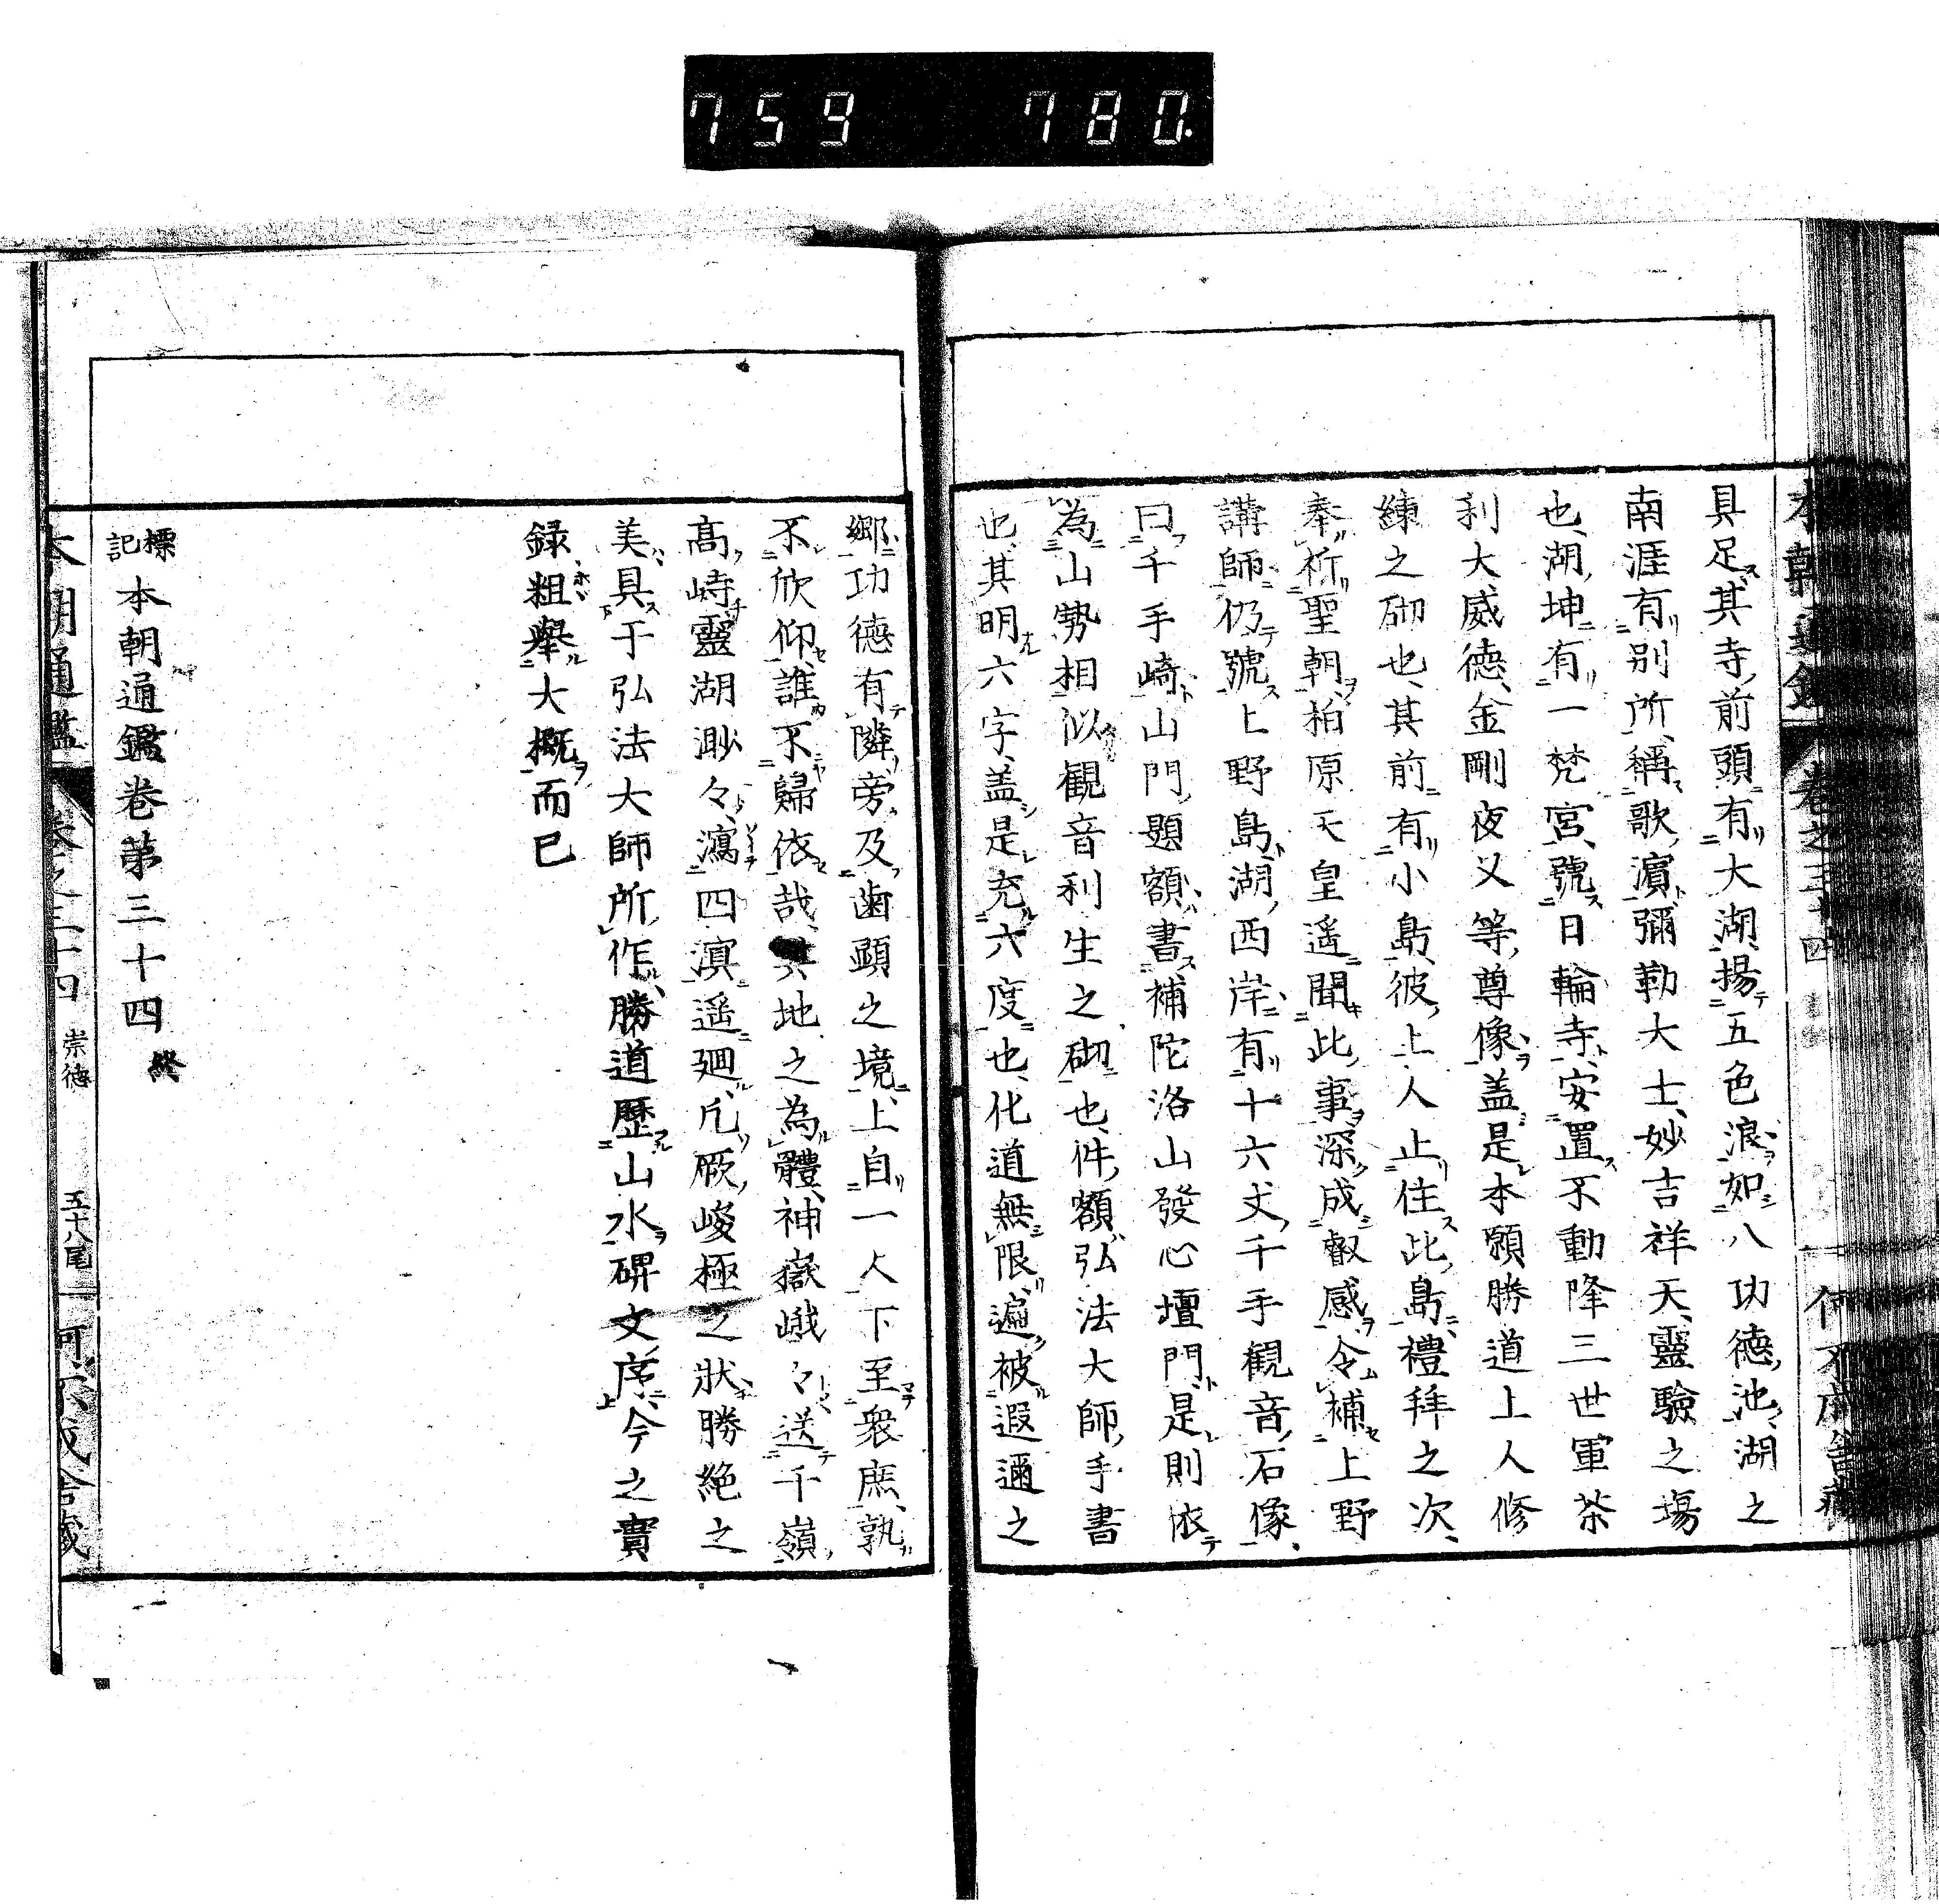 759 780.
具足其寺前頭有大湖揚五色浪如八功德池湖之
南涯有別所稱歌濱彌勒大士妙吉祥天靈驗之塲
也湖坤有一梵宮號日輪寺安置不動降三世軍茶
利大威德金剛夜叉等尊像盖是本願勝道上人修
練之砌也其前有小島彼上人止住此島禮拜之次
奉祈聖朝柏原天皇遥聞此事深成叡感令補上野
講師仍號上野島湖西岸有十六丈千手観音石像
曰千手崎山門題額書補陀洛山發心壇門是則依
為山勢相似観音利生之砌也件額弘法大師手書
也其明六字盖是充六度也化道無限遍被遐邇之
鄉功德有隣旁及鹵頭之境上自一人下至衆庶孰
不欣仰誰不歸依哉其地之為體神嶽峨々送千嶺
高峙靈湖渺々瀉四溟遥廻凢厥峻極之狀勝絶之
美具于弘法大師所作勝道歷山水碑文序今之實
録粗舉大概而已
標記 本朝通鑑卷第三十四 終
本朝通鑑 卷之三十四 崇德 五十八尾 何不成舎藏